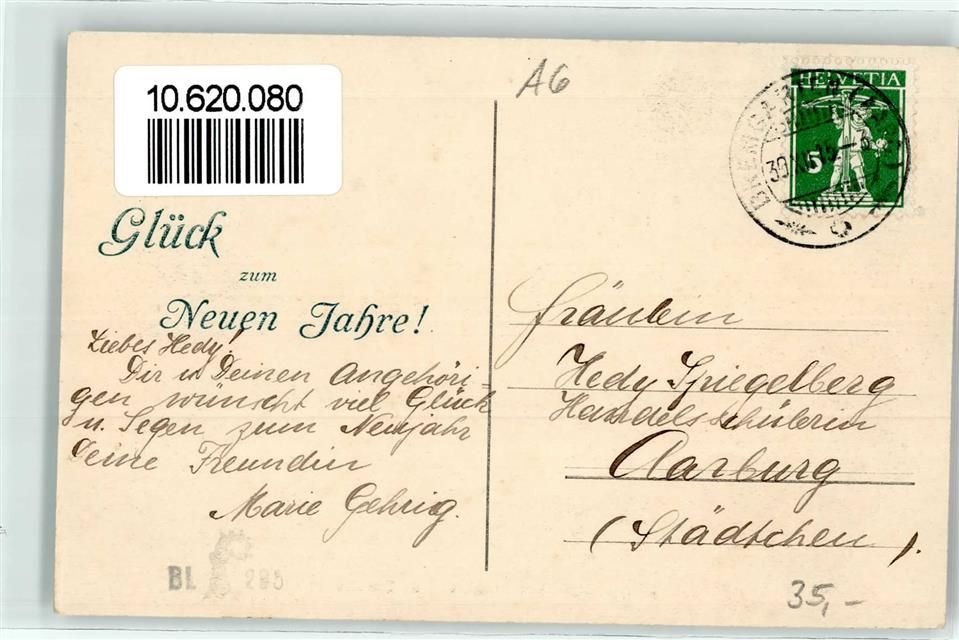 10.620.080
A6
HELVETIA
5
BREMGARTEN
30.XII.15
Glück
zum
Neuen Jahre!
Liebes Hedy!
Dir u. Deinen Angehöri-
gen wünscht viel Glück
u. Segen zum Neujahr
Deine Freundin
Marie Gehrig.
Fräulein
Hedy Spiegelberg
Handelsschülerin
Aarburg
(Städtchen).
BL 295
35,-